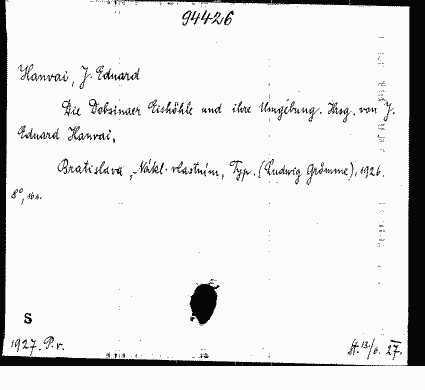 94426
Hanvai, J. Eduard
Die Dobsinaer Eishöhle und ihre Umgebung. Hrsg. von J.
Eduard Hanvai,
Bratislava, Nákl. vlastním, Typ. (Ludwig Grömme), 1926.
8°, 16 s.
S
1927. P. r.
St. 13/6. 27.